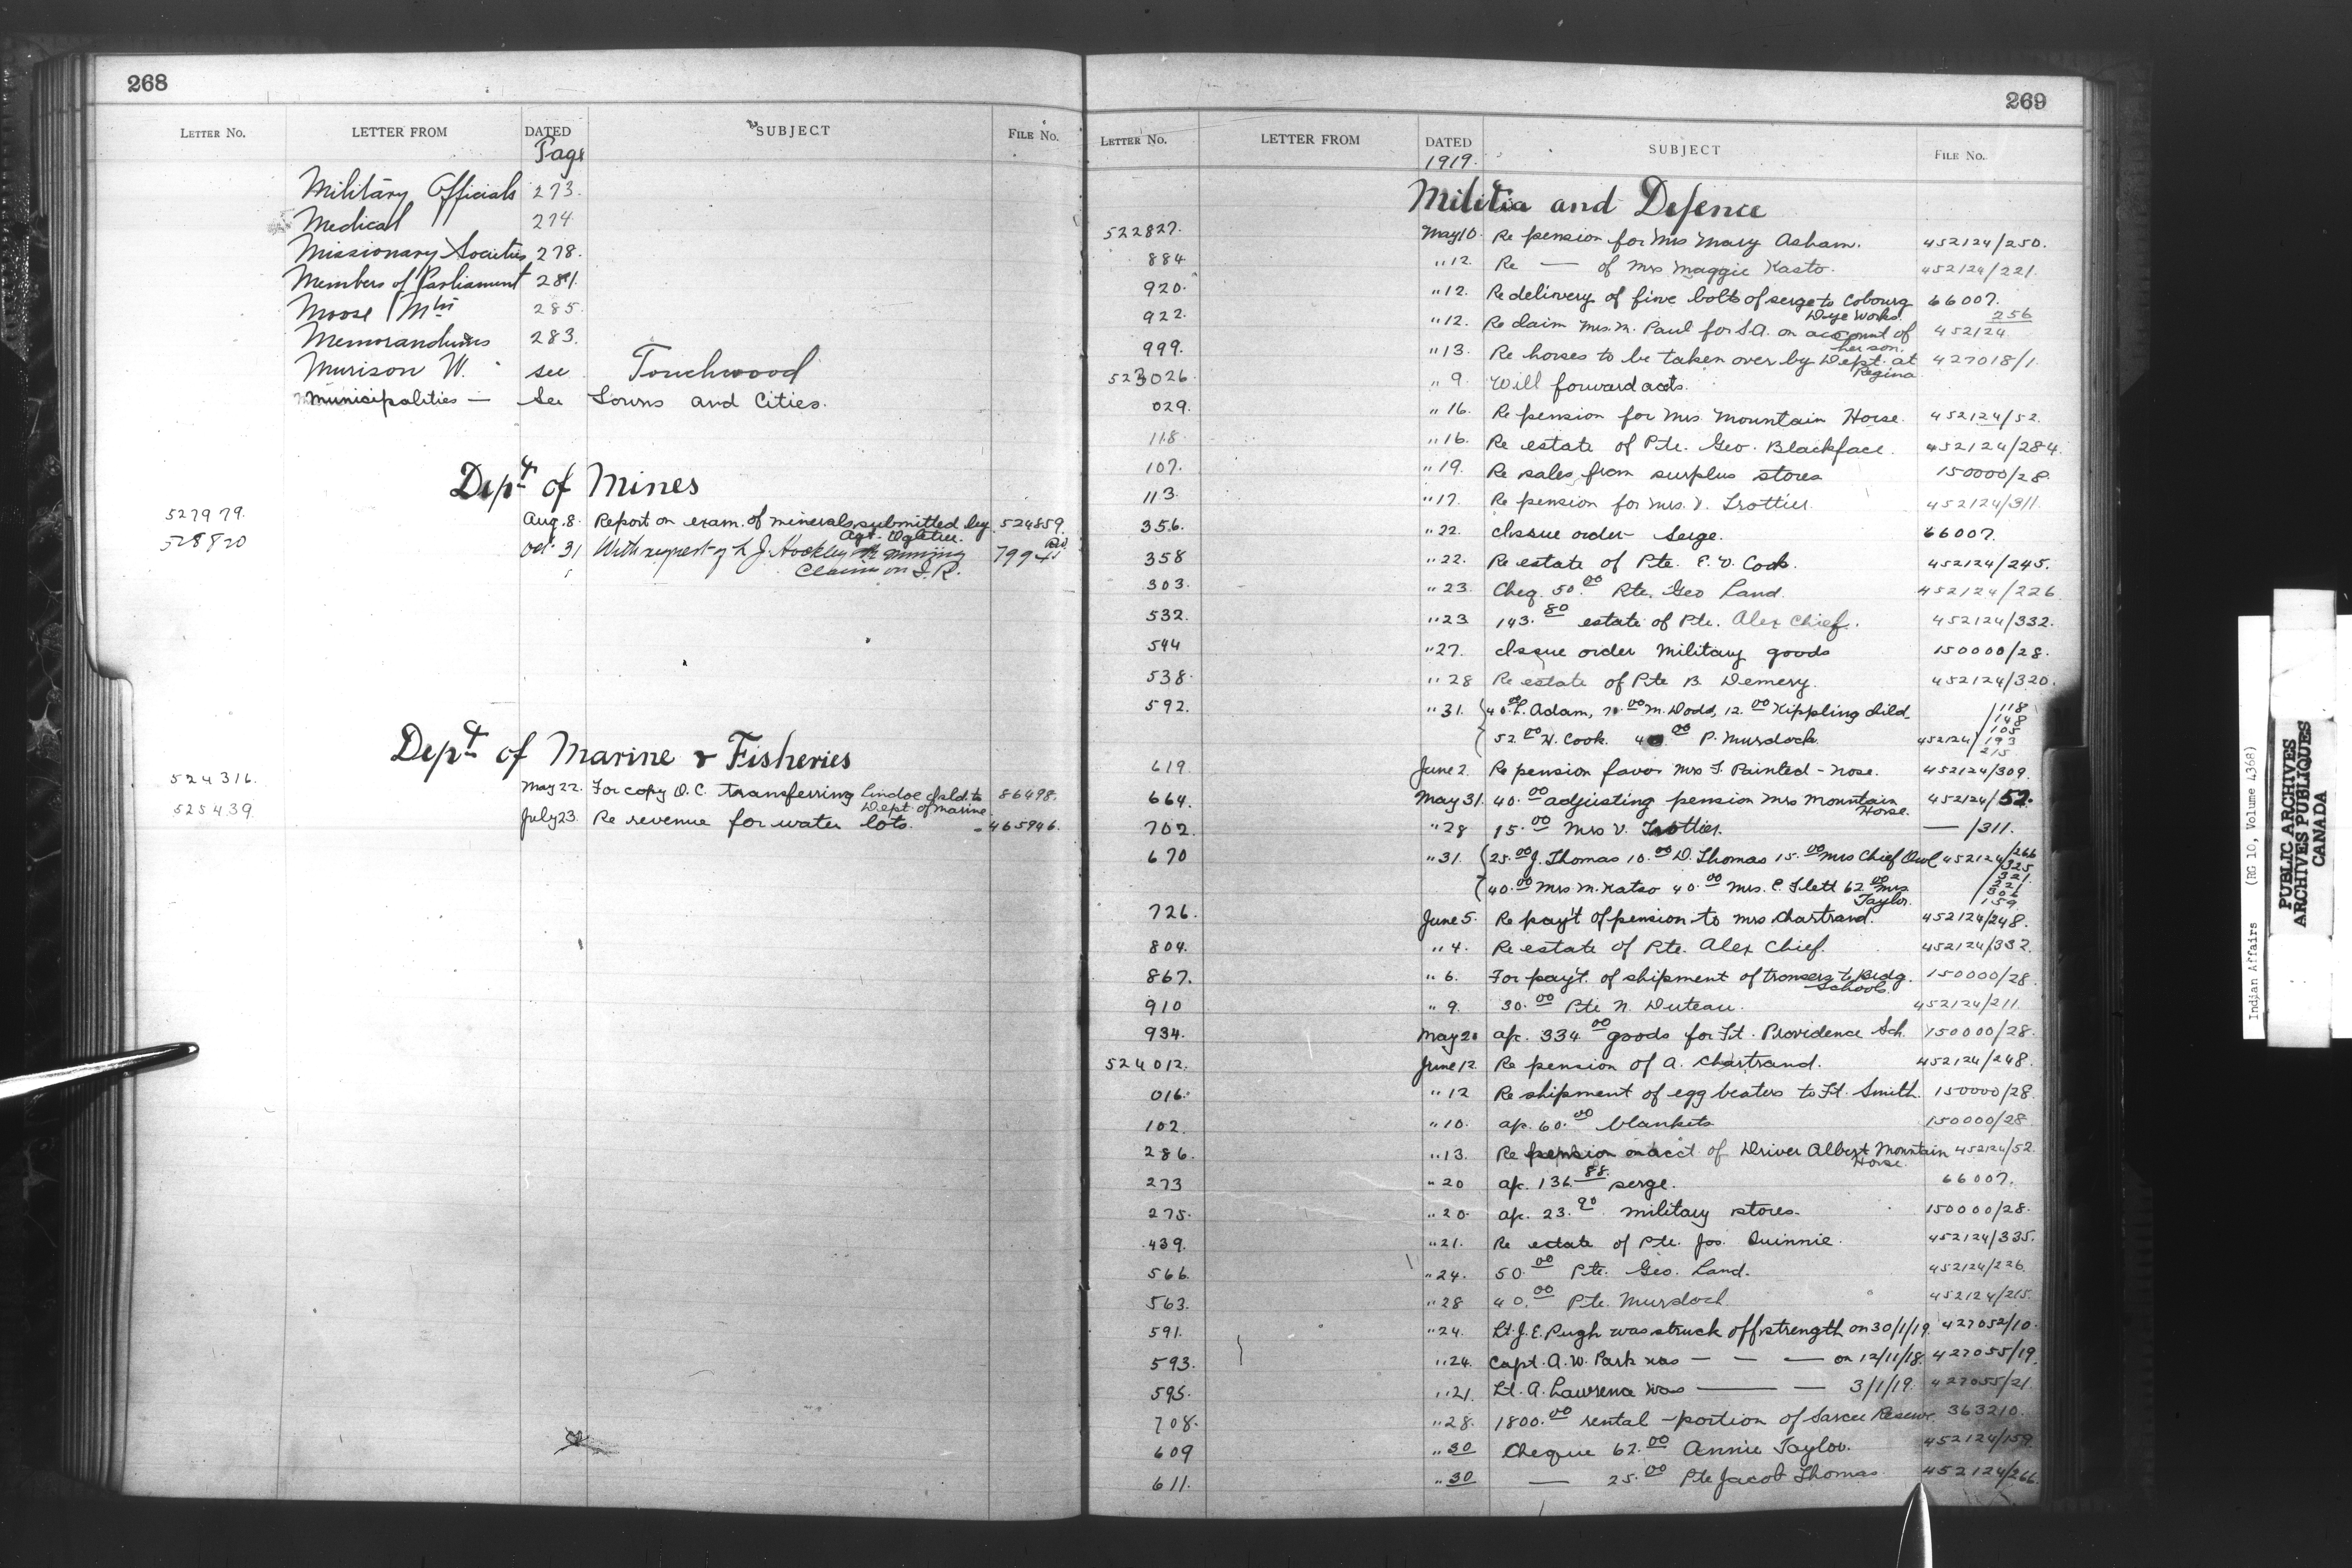 268
LETTER NO. LETTER FROM DATED SUBJECT FILE NO.
Page
Military Officials 273.
Medical 274
Missionary Societies 278.
Members of Parliament 281.
Moose Mtn 285.
Memorandums 283.
Murison W. see Touchwood
Municipalities — See Towns and Cities.
Dept of Mines
527979. Aug. 8. Report on exam. of minerals submitted by 524859
Agt. Ogletree.
528820 Oct 31 With request of L J. Hockley mining 7994
Claim on I.R.
Dept of Marine & Fisheries
524316. May 22. For copy O.C. transferring Isld. to 86498.
Dept. of Marine.
525439. July 23. Re revenue for water lots. 465946.
269
LETTER NO. LETTER FROM DATED SUBJECT FILE NO.
1919.
Militia and Defence
522827. May 10. Re pension for Mrs Mary Asham. 452124/250.
884 " 12. Re — of Mrs Maggie Kasto. 452124/221.
920. " 12. Re delivery of five bolts of serge to Cobourg 66007.
Dye Works.
922. " 12. Re claim Mrs. M. Paul for S.A. on account of 452124 256
her son.
999. " 13. Re horses to be taken over by Dept. at 427018/1
Regina
523026. " 9. Will forward accts.
029. " 16. Re pension for Mrs. Mountain Horse. 452124/52.
118. " 16. Re estate of Pte. Geo. Blackface. 452124/284.
107. " 19. Re sales from surplus stores 150000/28.
113. " 17. Re pension for Mrs. V. Trottier. 452124/311.
356. " 22. Issue order Serge. 66007.
358 " 22. Re estate of Pte. E. V. Cook. 452124/245.
303. " 23. Cheq. 50.00 Pte. Geo Land. 452124/226
532. " 23 143.80 estate of Pte. Alex Chief. 452124/332.
544 " 27. Issue order Military goods 150000/28.
538. " 28 Re estate of Pte B. Demery. 452124/320.
592. " 31. 40.00 L. Adam, 00 M. Dodd, 12.00 Kippling Child. /118
/148
105
52.00 W. Cook. 40.00 P. Murdoch. 452124/193
215
619. June 2. Re pension favor Mrs T. Painted-nose. 452124/309.
664. May 31. 40.00 adjusting pension Mrs Mountain 452124/52.
Horse.
702. " 28 15.00 Mrs V. Trottier. — /311.
670 " 31. 25.00 J. Thomas 10.00 D. Thomas 15.00 Mrs Chief Owl 452124/266
/325
40.00 Mrs. M. Katso 40.00 Mrs. C. Flett 62.00 Mrs /221
Taylor. /159
726. June 5. Re pay't of pension to Mrs Chartrand. 452124/248.
804. " 4. Re estate of Pte. Alex Chief. 452124/332.
867. " 6. For pay't. of shipment of trousers to Bldg. 150000/28
School.
910 " 9. 30.00 Pte N. Duteau. 452124/211.
934. May 20 ap. 334.00 goods for Ft. Providence Sch. 150000/28.
524012. June 12. Re pension of A. Chartrand. 452124/248.
016. " 12 Re shipment of egg beaters to Ft. Smith. 150000/28.
102. " 10. ap. 60.00 blankets 150000/28
286. " 13. Re pension on acct of Driver Albert Mountain 452124/52.
Horse.
273 " 20 ap. 136.88 serge. 66007.
275. " 20. ap. 23.90 military stores. 150000/28.
439. " 21. Re estate of Pte. Jos. Quinnie. 452124/335.
566. " 24. 50.00 Pte. Geo. Land. 452124/226
563. " 28 40.00 Pte. Murdoch. 452124/215.
591. " 24. Lt. J. E. Pugh was struck off strength on 30/1/19. 427052/10.
593. " 24. Capt. A. W. Park was — — — on 12/11/18. 427055/19.
595. " 21. Lt. A. Lawrence was — — 3/1/19. 427055/21.
708. " 28. 1800.00 rental - portion of Sarcee Reserve 363210.
609 " 30 Cheque 62.00 Annie Taylor. 452124/159.
611. " 30 — 25.00 Pte Jacob Thomas 452124/266
Indian Affairs (RG 10, Volume 4368)
PUBLIC ARCHIVES
ARCHIVES PUBLIQUES
CANADA